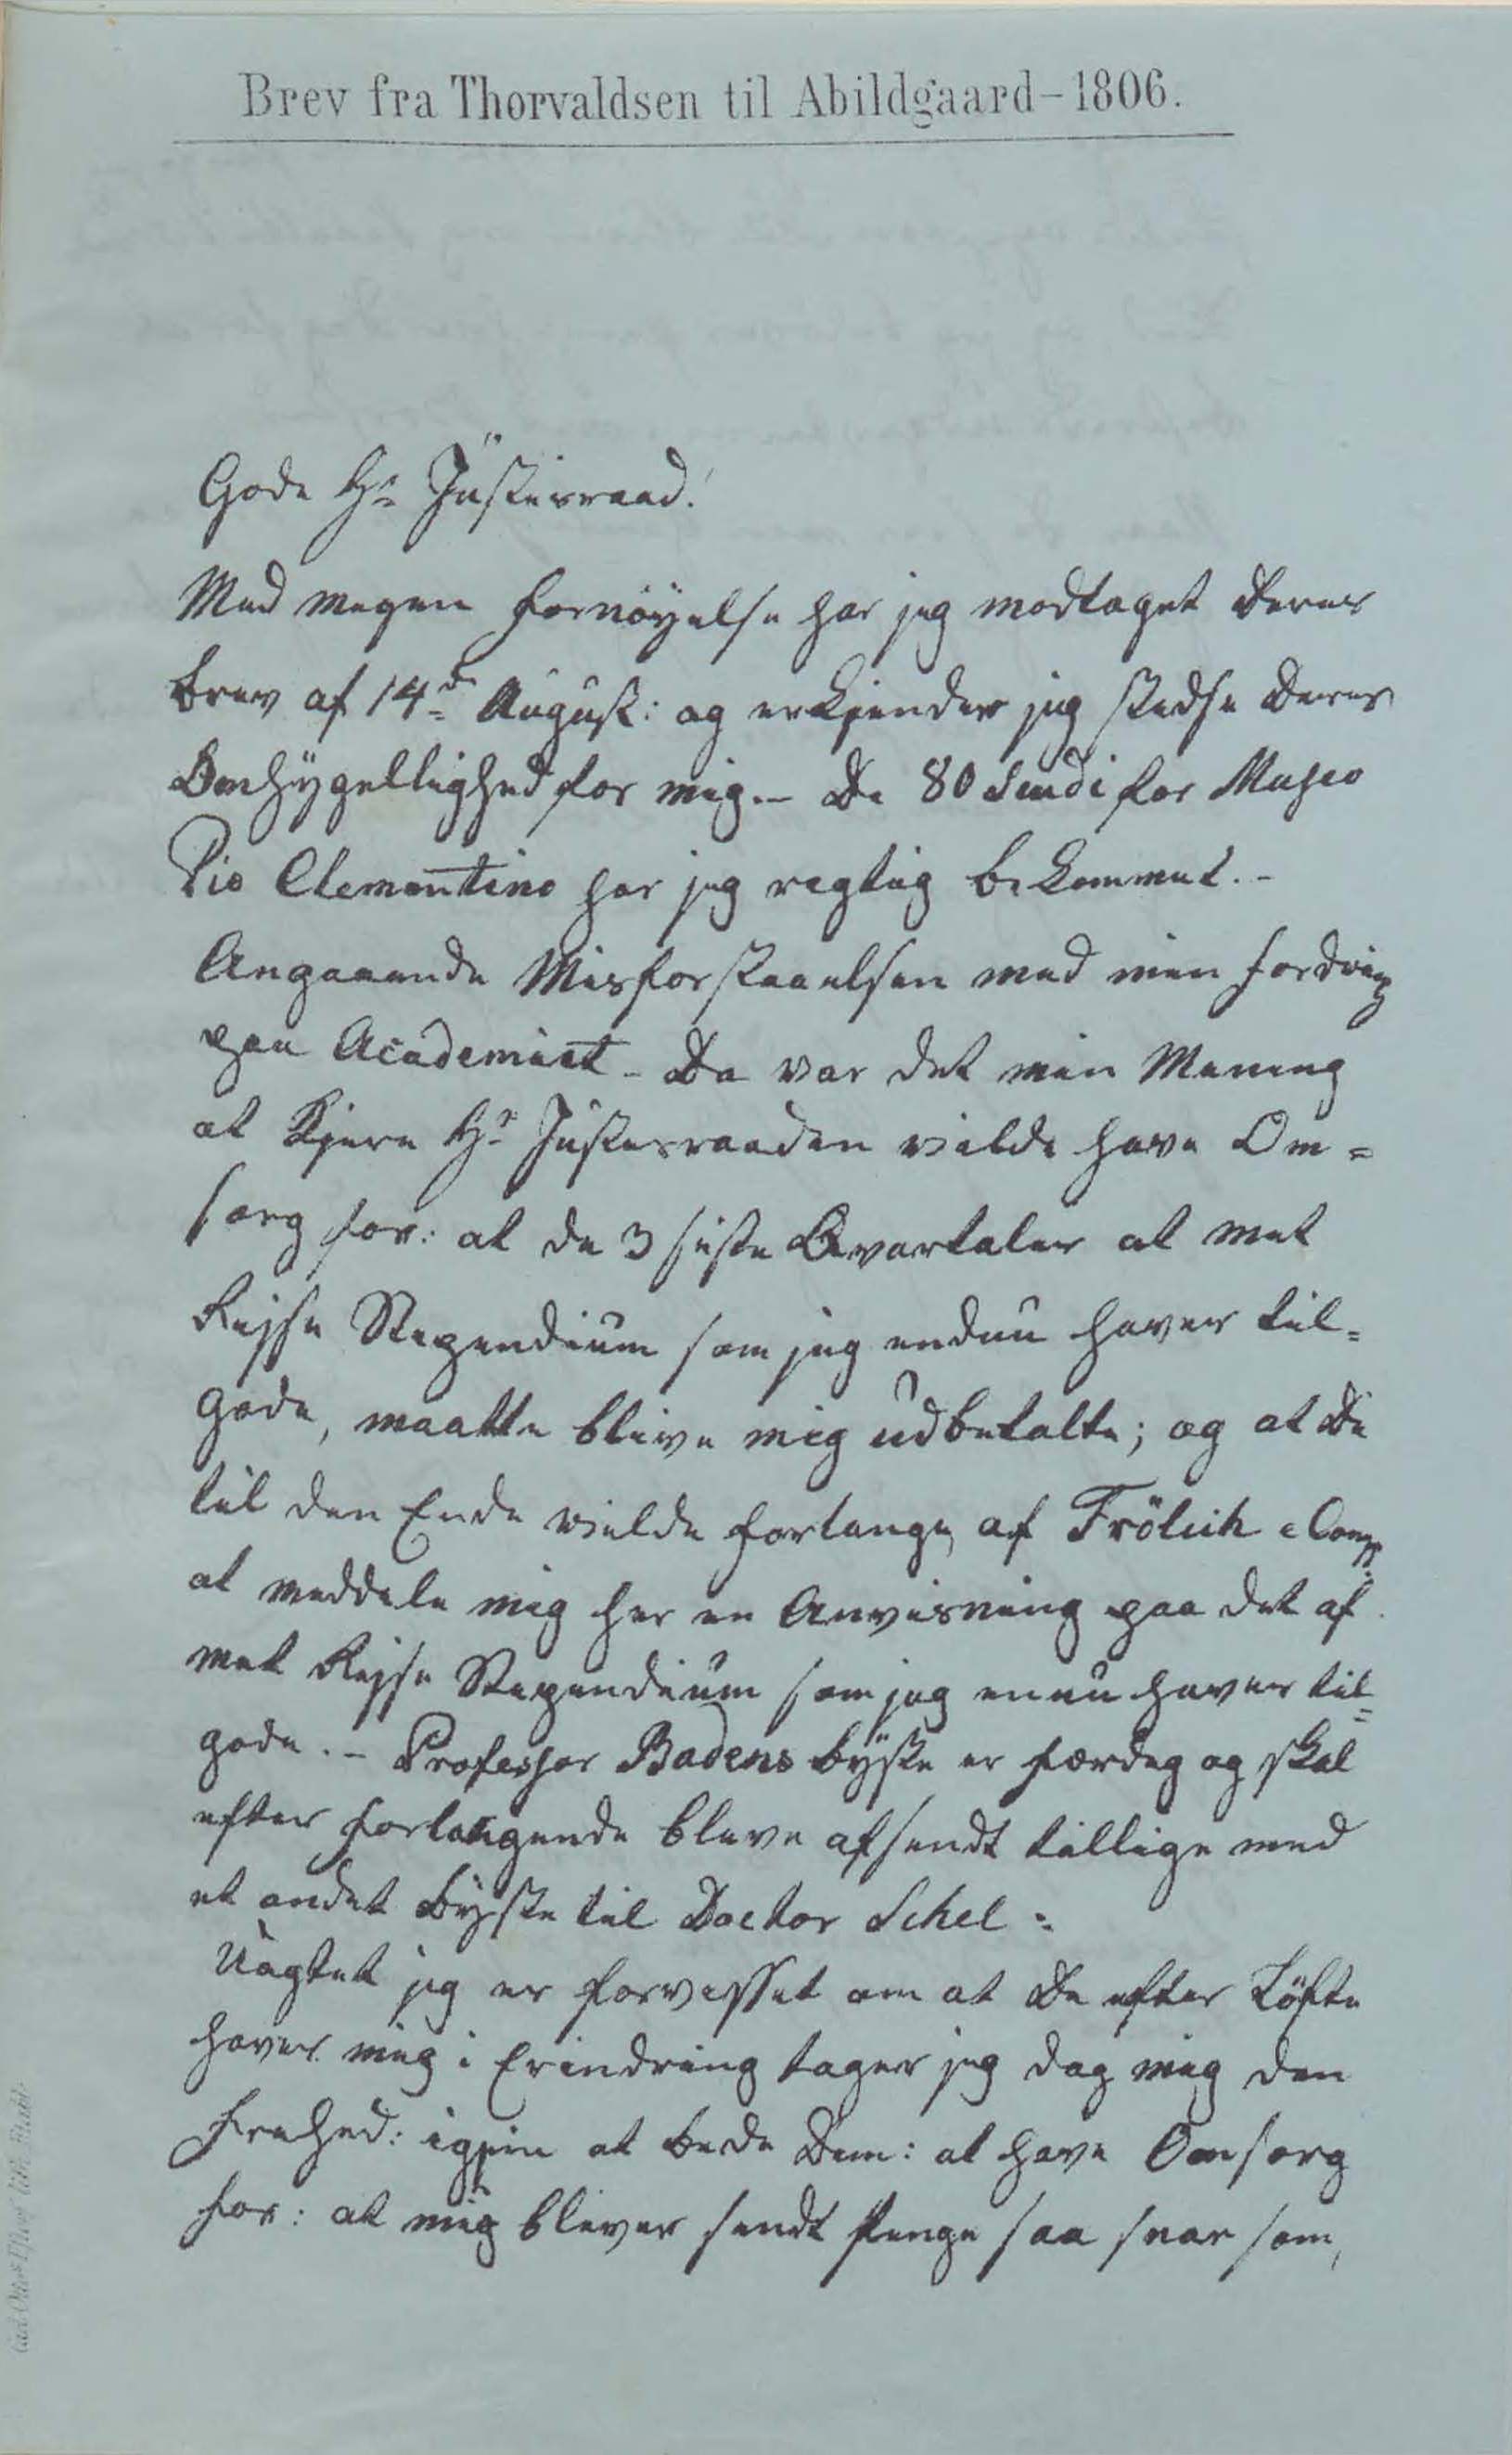 Brev fra Thorvaldsen til Abildgaard – 1806.
Gode Hr Justisraad!
Med megen Fornöyelse har jeg modtaget Deres
Brev af 14de August: og erkjender jeg stedse Deres
Omhÿgellighed for mig. – De 80 Scudi for Museo
Pio Clementino har jeg regtig bekommet. –
Angaaende Misforstaaelsen med min Fordring
paa Academiet – Da var det min Mening
at Kjere Hr Justesraaden vilde have Om=
sorg for: at de 3 siste Qvartaler at met
Rejse Stependium som jeg endnu haver til=
gode, maatte blive mig udbetalte; og at De
til den Ende vielde forlange, af Frölich e Comp.
at meddele mig her en Anvisning paa det af
met Rejse Stependium som jeg ennu haver til=
gode. – Professor Badens Büste er færdeg og skal
efter forlangende bleve afsendt tillige med
et andet Büste til Doctor Schel :
Uagtet jeg er forvesset om at De efter Löfte
haver mig i Erindring tager jeg dog mig den
Frehed: igjen at bede Dem: at have Omsorg
for: at mig bliver sendt Penge saa snar som,